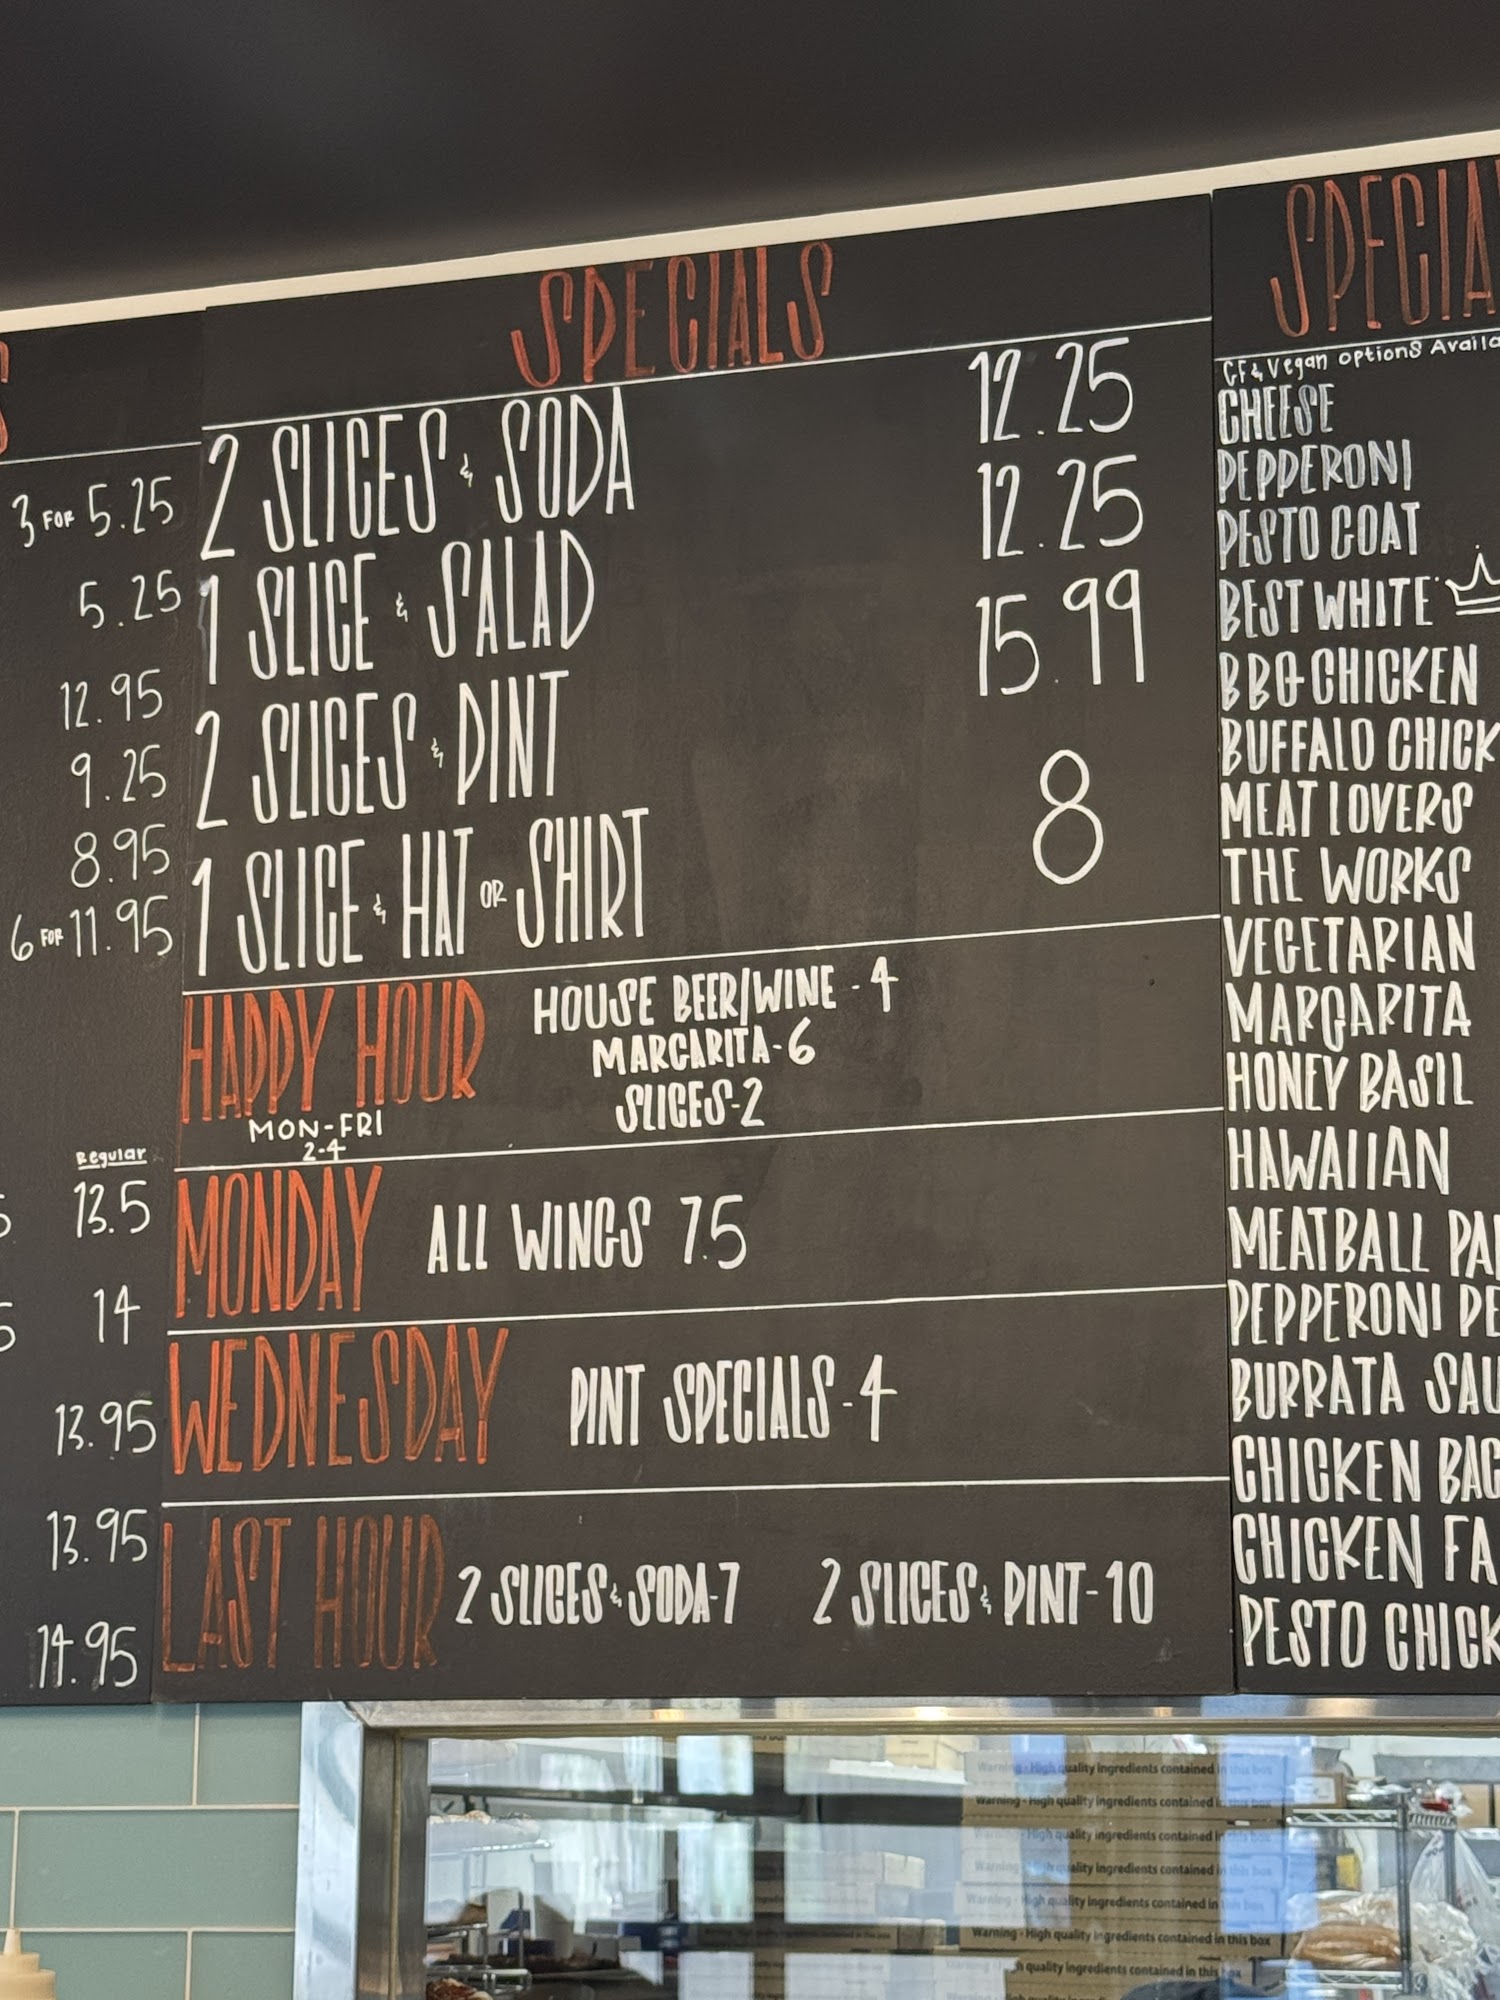 S
3 FOR 5.25
5.25
12.95
9.25
8.95
6 FOR 11.95
Regular
5 13.5
5 14
13.95
13.95
14.95
SPECIALS
2 SLICES & SODA 12.25
1 SLICE & SALAD 12.25
2 SLICES & PINT 15.99
1 SLICE & HAT OR SHIRT 8
HAPPY HOUR
MON-FRI
2-4
HOUSE BEER/WINE - 4
MARGARITA - 6
SLICES - 2
MONDAY ALL WINGS 7.5
WEDNESDAY PINT SPECIALS - 4
LAST HOUR 2 SLICES & SODA - 7 2 SLICES & PINT - 10
SPECIA
GF & Vegan options Availa
CHEESE
PEPPERONI
PESTO GOAT
BEST WHITE
BBQ CHICKEN
BUFFALO CHICK
MEAT LOVERS
THE WORKS
VEGETARIAN
MARGARITA
HONEY BASIL
HAWAIIAN
MEATBALL PA
PEPPERONI PE
BURRATA SAU
CHICKEN BAC
CHICKEN FA
PESTO CHICK
Warning - High quality ingredients contained in this box
Warning - High quality ingredients contained in this box
High quality ingredients contained in this box
Warning - High quality ingredients contained in this box
Warning - High quality ingredients contained in this box
Warning - High quality ingredients contained in this box
quality ingredients contained in this box